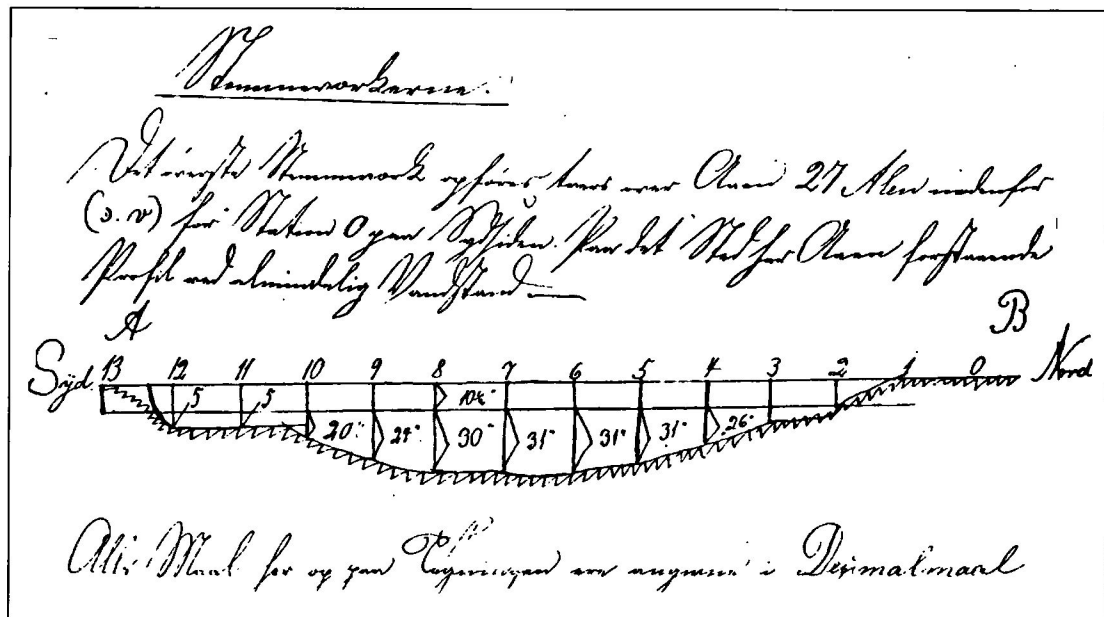 Stemmeværkerne.
Det øverste Stemmeværk opføres tværs over Aaen 27 Alen indenfor
(ɔ. v) for Station 0 paa Sydsiden. Paa det Sted har Aaen forstaaende
Profil ved almindelig Vandstand —
A B
Syd. 13 12 11 10 9 8 7 6 5 4 3 2 1 0 Nord
5 5 20" 24" 30" 31" 31" 31" 26"
Alle Maal her og paa Tegningen ere angivne i Decimalmaal